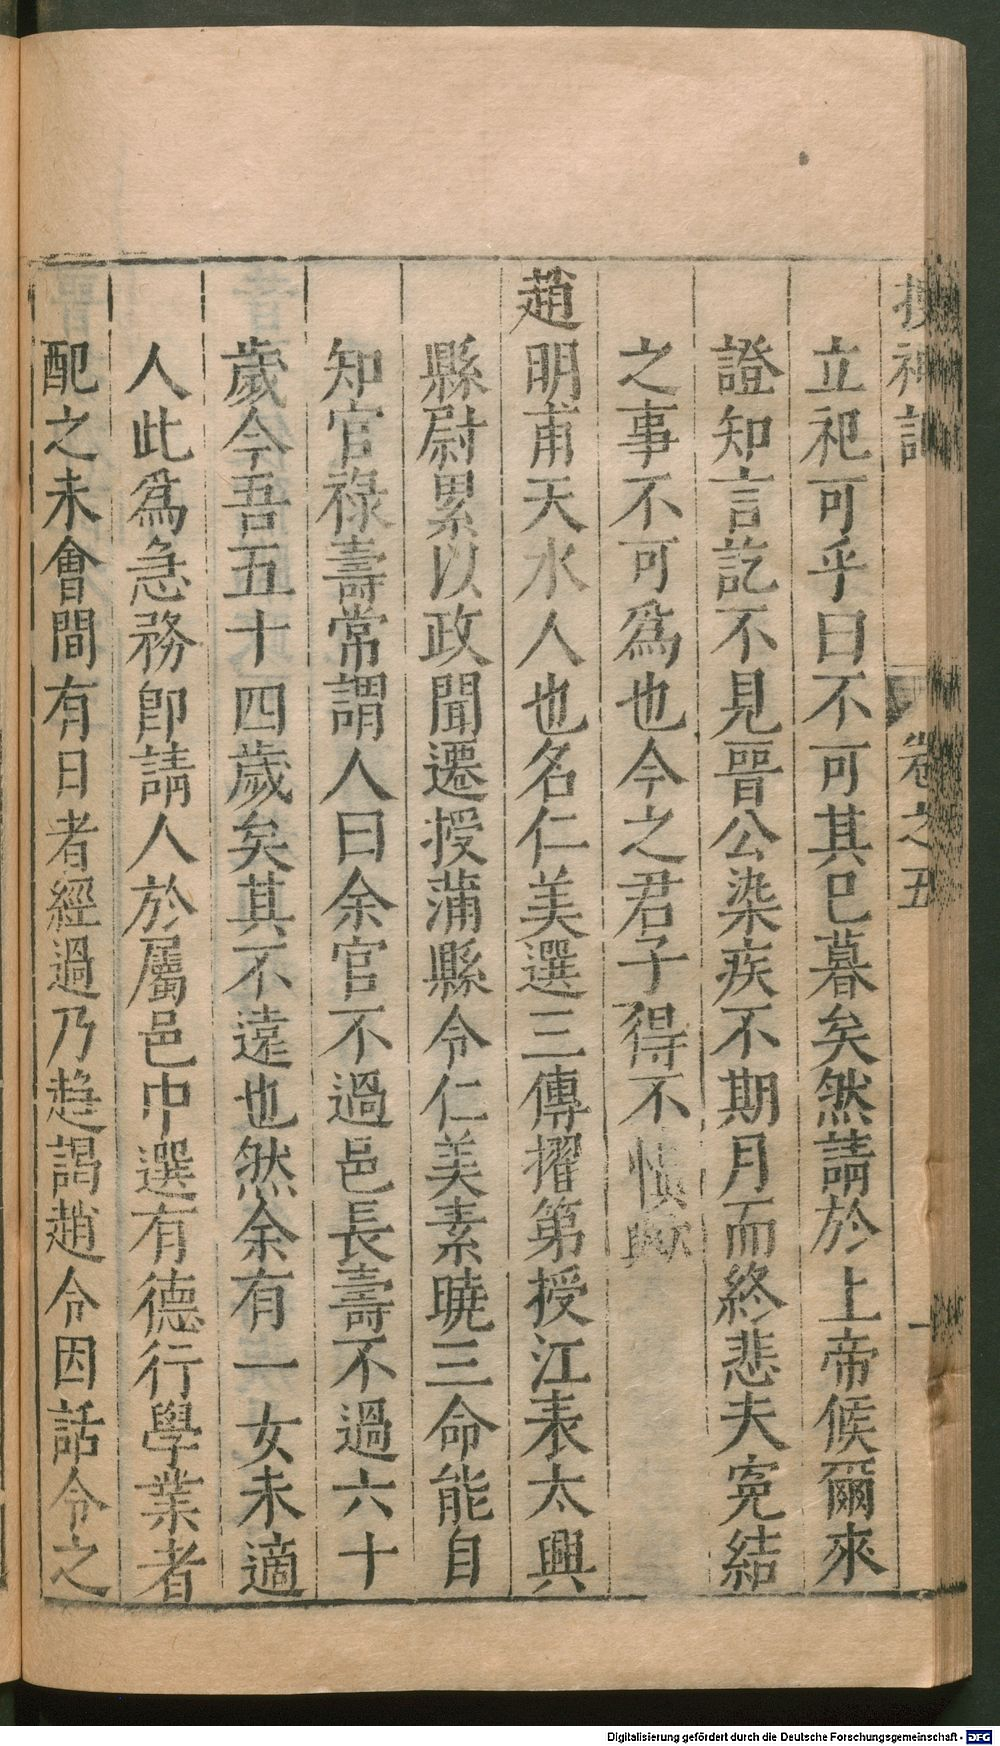 搜神記 卷之五 一
立祀可乎曰不可其巳暮矣然請於上帝候爾來
證知言訖不見晉公染疾不期月而終悲夫寃結
之事不可爲也今之君子得不慎歟
趙明甫天水人也名仁美選三傳擢第授江表太興
縣尉累以政聞遷授蒲縣令仁美素曉三命能自
知官祿壽常謂人曰余官不過邑長壽不過六十
歲今吾五十四歲矣其不遠也然余有一女未適
人此爲急務卽請人於屬邑中選有德行學業者
配之未會間有日者經過乃趋謁趙令因話令之
Digitalisierung gefördert durch die Deutsche Forschungsgemeinschaft - DFG